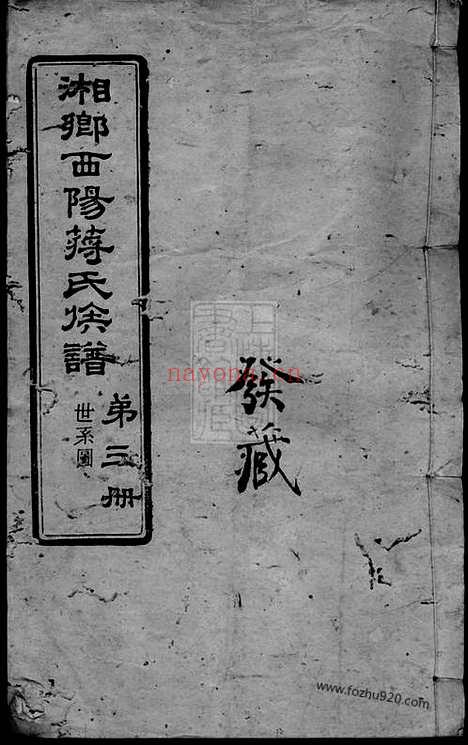 湘鄉西陽蔣氏族譜
弟三冊
世系圖
發藏
nayona.cn
www.fozhu920.com